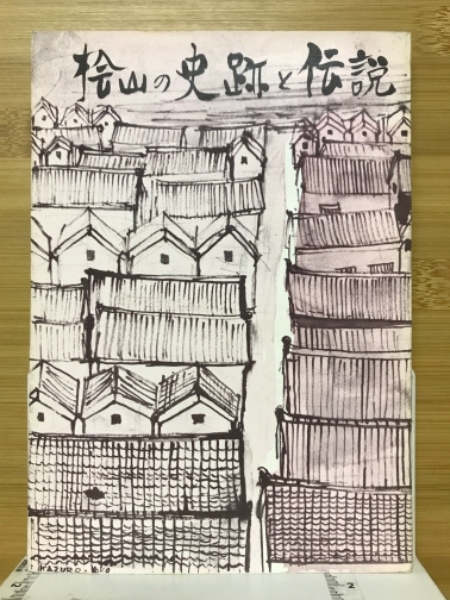 桧山の史跡と伝説
KAZURO.
2